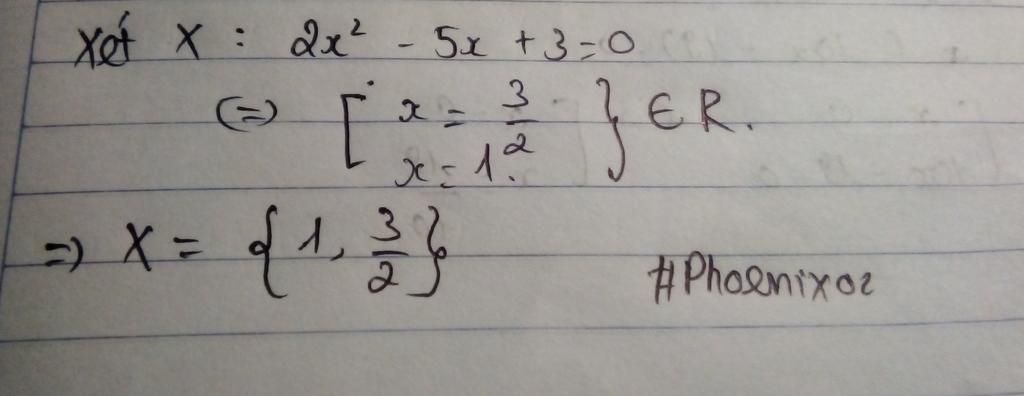 Xét X : 2x² - 5x + 3 = 0
(=) [ x = 3/2
x = 1. } ∈ R.
=) X = {1, 3/2}
#Phoenixoz